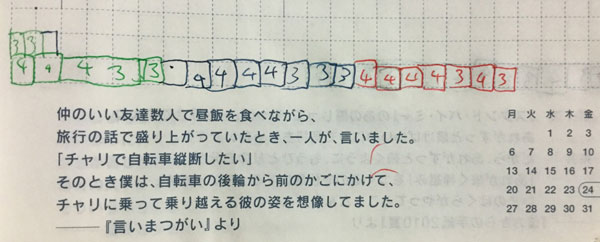 3 3
4 4 4 3 3 4 4 4 4 3 3 3 4 4 4 4 3 4 3
仲のいい友達数人で昼飯を食べながら、
旅行の話で盛り上がっていたとき、一人が、言いました。
「チャリで自転車縦断したい」
そのとき僕は、自転車の後輪から前のかごにかけて、
チャリに乗って乗り越える彼の姿を想像してました。
――『言いまつがい』より
月 火 水 木 金
1 2 3
6 7 8 9 10
13 14 15 16 17
20 21 22 23 24
27 28 29 30 31